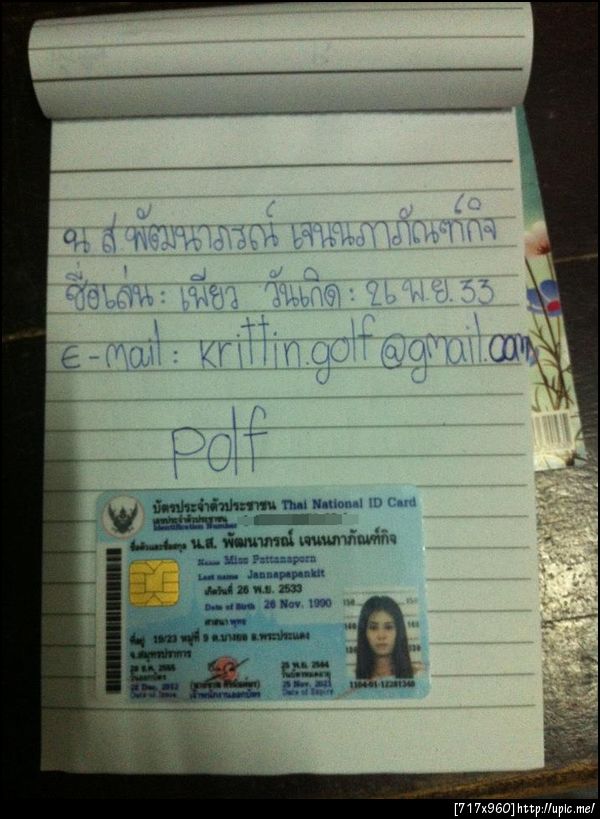 น ส.พัฒนาภรณ์ เจนนภาภัณฑ์กิจ
ชื่อเล่น : เพียว วันเกิด : 26 พ.ย. 33
E-mail : krittin.golf@gmail.com
Polf
บัตรประจำตัวประชาชน Thai National ID Card
เลขประจำตัวประชาชน
Identification Number
ชื่อตัวและชื่อสกุล น.ส. พัฒนาภรณ์ เจนนภาภัณฑ์กิจ
Name Miss Pattanaporn
Last name Jannapapankit
เกิดวันที่ 26 พ.ย. 2533
Date of Birth 26 Nov. 1990
ศาสนา พุทธ
ที่อยู่ 19/23 หมู่ที่ 9 ต.บางยอ อ.พระประแดง
จ.สมุทรปราการ
28 ธ.ค. 2555
วันออกบัตร
28 Dec. 2012
Date of Issue
เจ้าพนักงานออกบัตร
25 พ.ย. 2564
วันบัตรหมดอายุ
25 Nov. 2021
Date of Expiry
150
140
[717x960]http://upic.me/